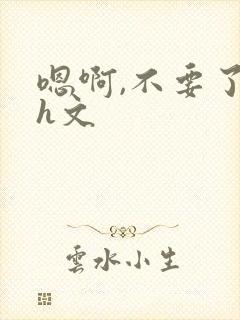 嗯啊,不要了
h文
雲水小生